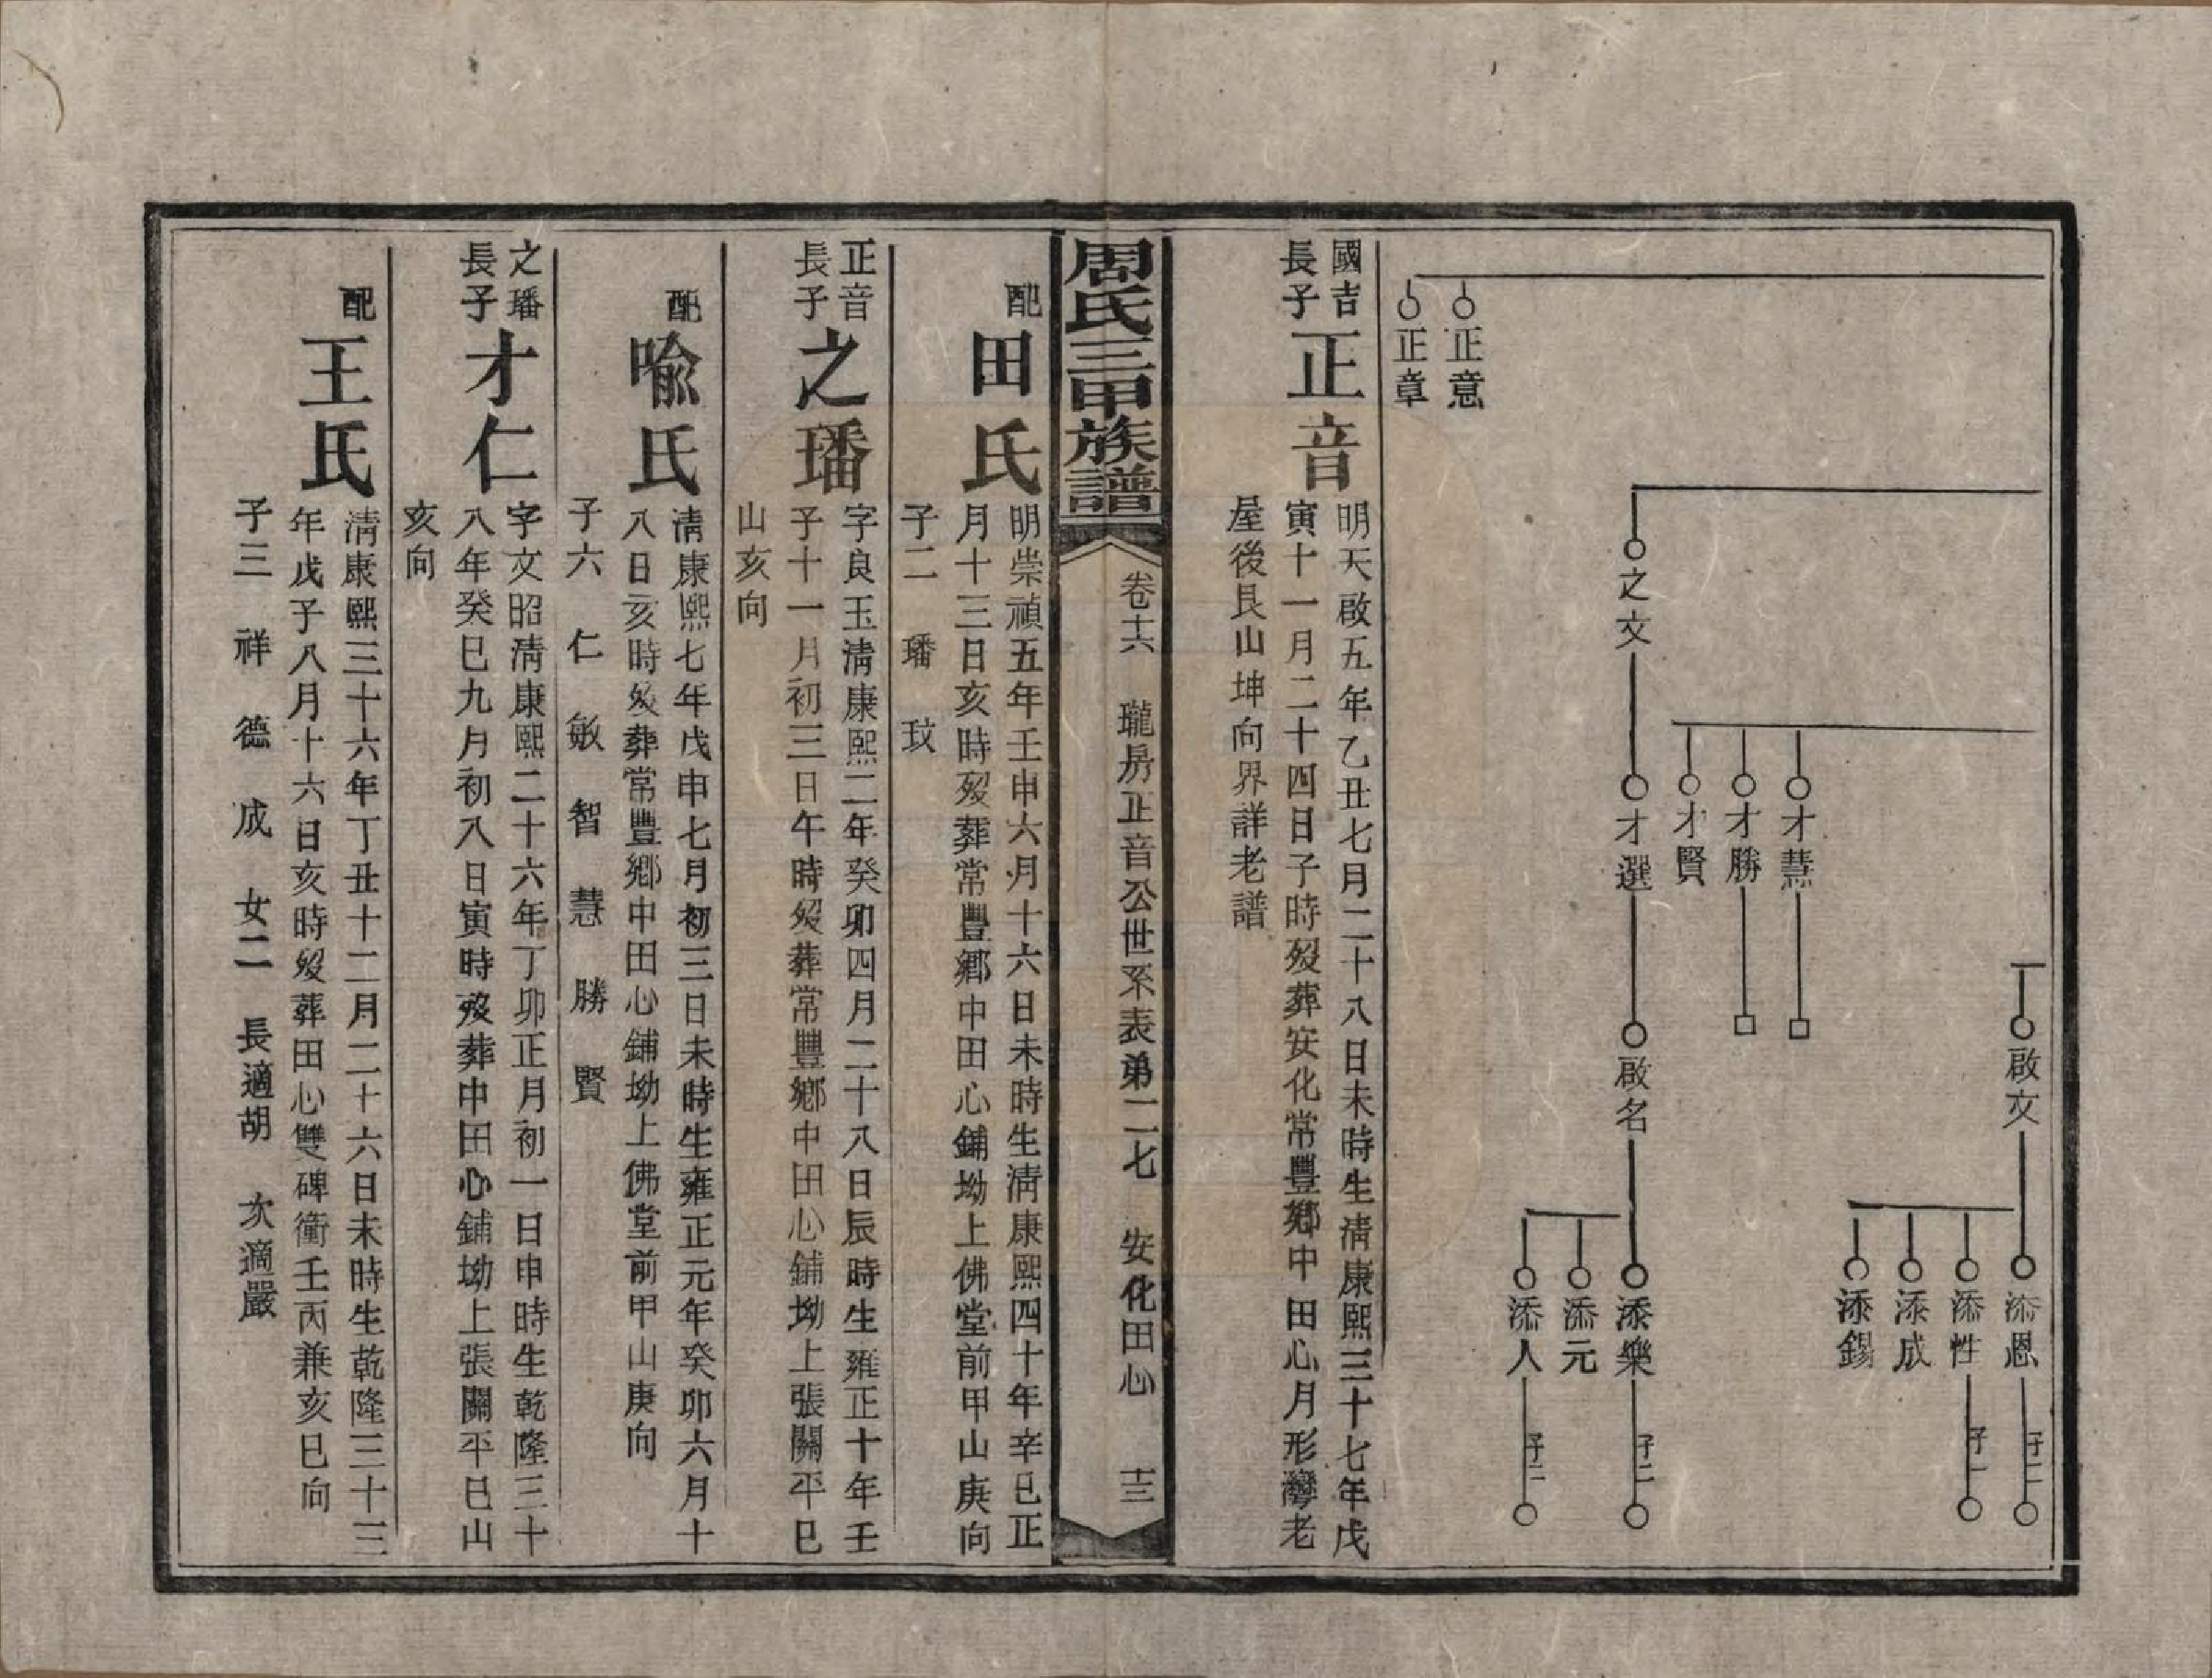 啟文
添恩
子二
添性
子一
添成
添錫
才慧
才勝
才賢
之文
才選
啟名
添樂
子二
添元
添人
子一
正意
正章
國吉長子
正音
明天啟五年乙丑七月二十八日未時生清康熙三十七年戊
寅十一月二十四日子時歿葬安化常豐鄉中田心月形灣老
屋後艮山坤向界詳老譜
周氏三甲族譜
卷十六 瓏房正音公世系表弟二七 安化田心 十三
配
田氏
明崇禎五年壬申六月十六日未時生清康熙四十年辛巳正
月十三日亥時歿葬常豐鄉中田心鋪坳上佛堂前甲山庚向
子二 璠 玟
正音長子
之璠
字良玉清康熙二年癸卯四月二十八日辰時生雍正十年壬
子十一月初三日午時歿葬常豐鄉中田心鋪坳上張關平巳
山亥向
配
喻氏
清康熙七年戊申七月初三日未時生雍正元年癸卯六月十
八日亥時歿葬常豐鄉中田心鋪坳上佛堂前甲山庚向
子六 仁 敏 智 慧 勝 賢
之璠長子
才仁
字文昭清康熙二十六年丁卯正月初一日申時生乾隆三十
八年癸巳九月初八日寅時歿葬中田心鋪坳上張關平巳山
亥向
配
王氏
清康熙三十六年丁丑十二月二十六日未時生乾隆三十三
年戊子八月十六日亥時歿葬田心雙碑衝壬丙兼亥巳向
子三 祥 德 成 女二 長適胡 次適嚴